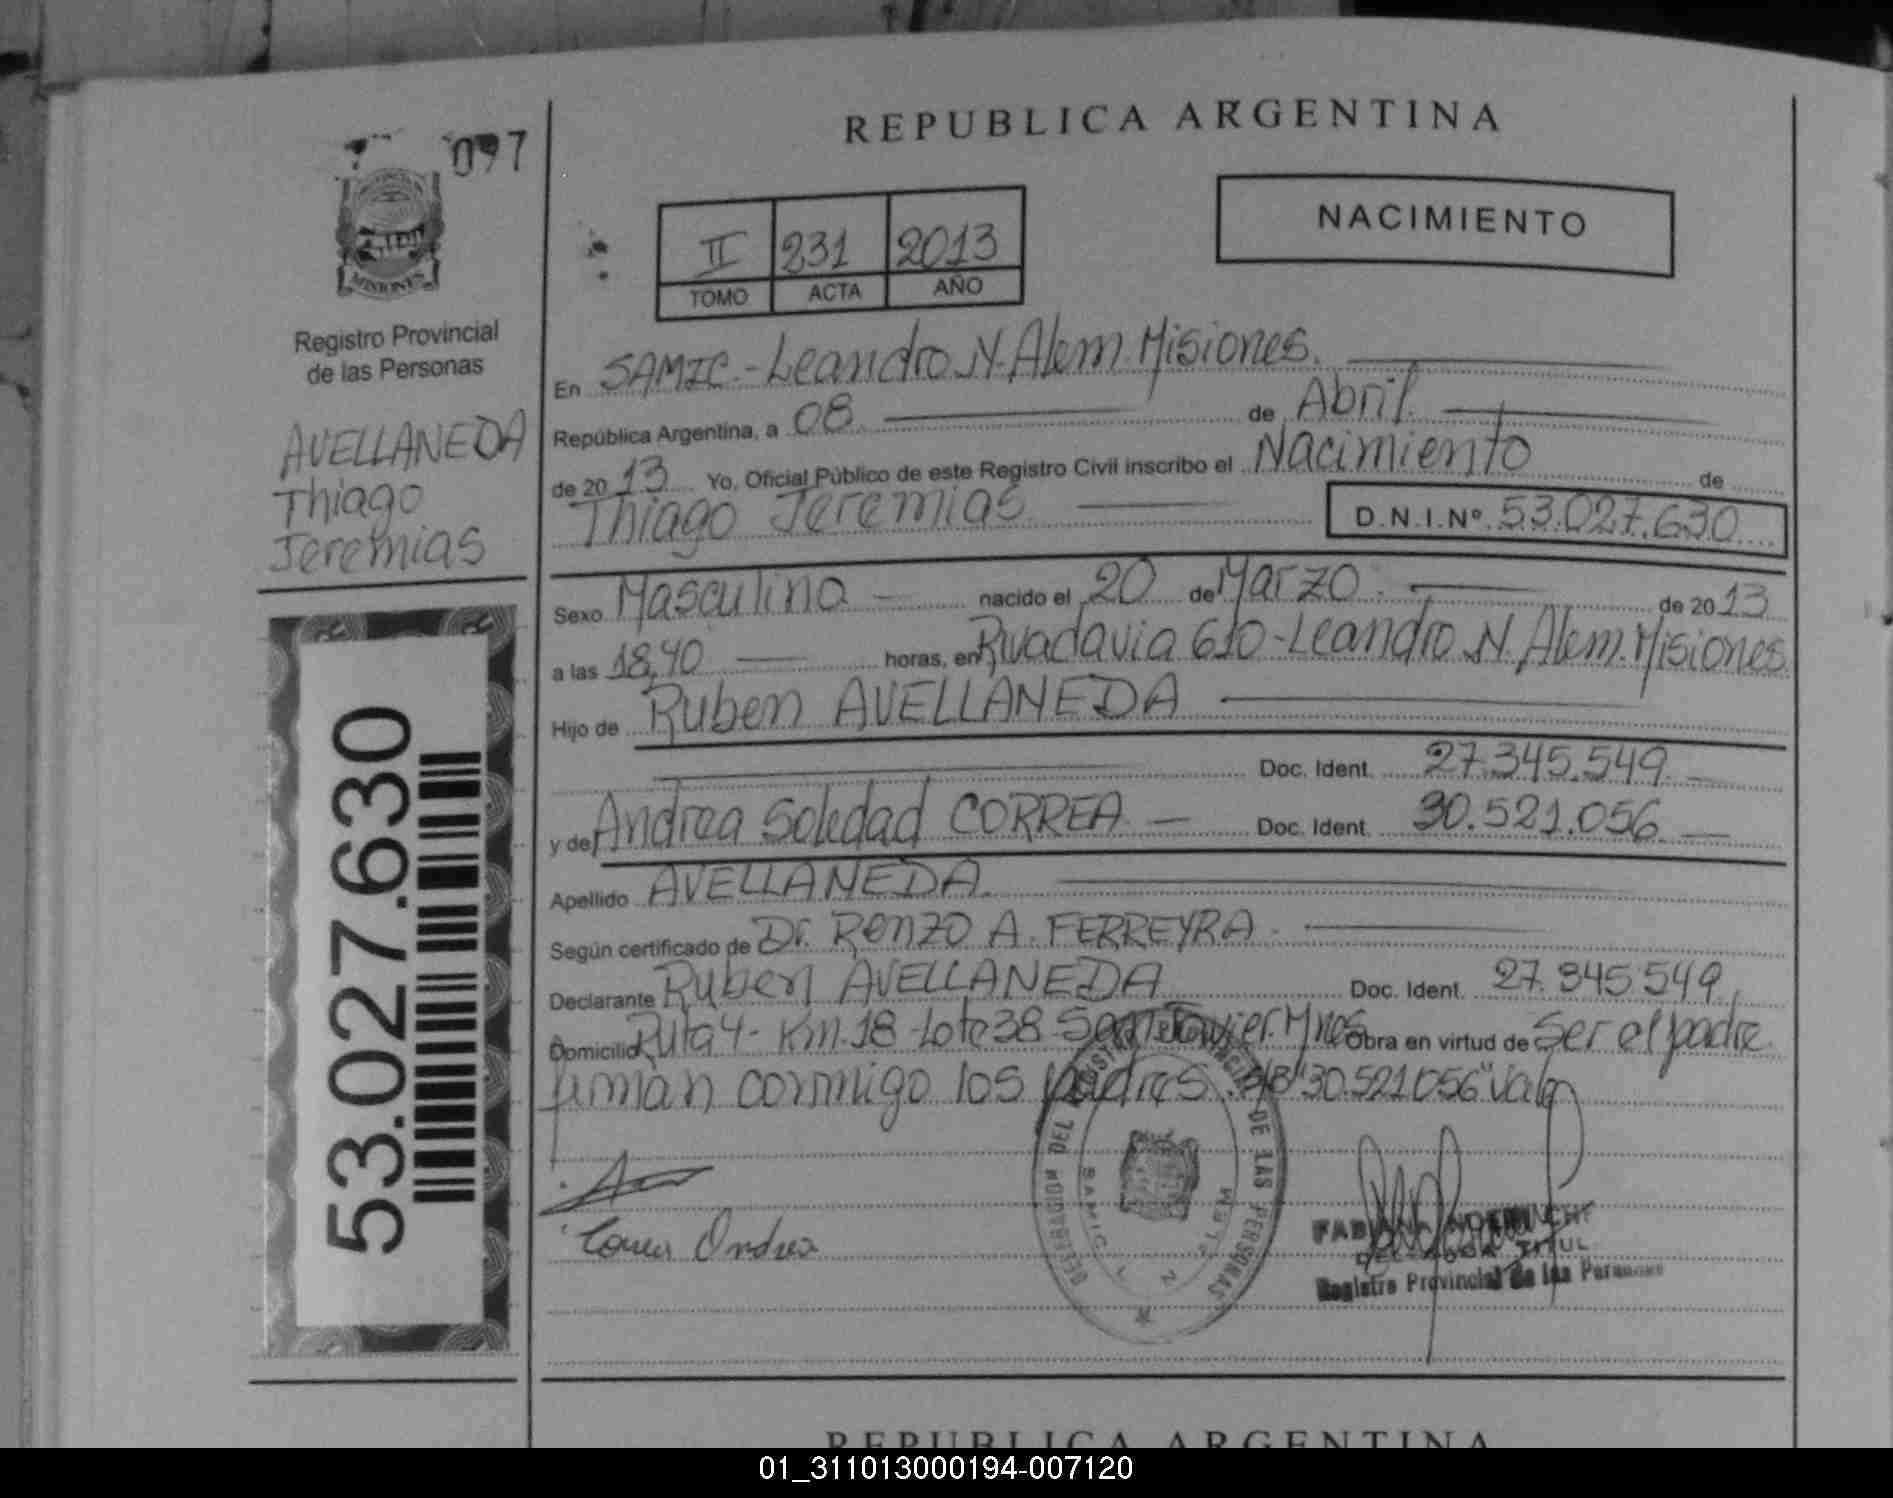 097
REPUBLICA ARGENTINA
MISIONES
Registro Provincial
de las Personas
AVELLANEDA
Thiago
Jeremias
II 231 2013
TOMO ACTA AÑO
NACIMIENTO
En SAMIC.-Leandro N. Alem. Misiones.
República Argentina, a 08 de Abril.
de 2013 Yo, Oficial Público de este Registro Civil inscribo el Nacimiento de
Thiago Jeremias D.N.I.Nº 53.027.630
Sexo Masculino nacido el 20 de Marzo de 2013
a las 18,40 horas, en Rivadavia 610-Leandro N. Alem. Misiones
Hijo de Ruben AVELLANEDA
Doc. Ident. 27.345.549
y de Andrea Soledad CORREA Doc. Ident. 30.521.056
Apellido AVELLANEDA.
Según certificado de Dr. Renzo A. FERREYRA.
Declarante Ruben AVELLANEDA Doc. Ident. 27.345.549
Domicilio Ruta 4- Km.18-Lote 38 San Javier. Mnes Obra en virtud de Ser el padre
firman conmigo los padres. S/B "30.521.056" Vale
Correa Andrea
DEL REGISTRO PROVINCIAL DE LAS PERSONAS
SAMIC
FABIANA
Registro Provincial de las Personas
53.027.630
REPUBLICA ARGENTINA
01_311013000194-007120